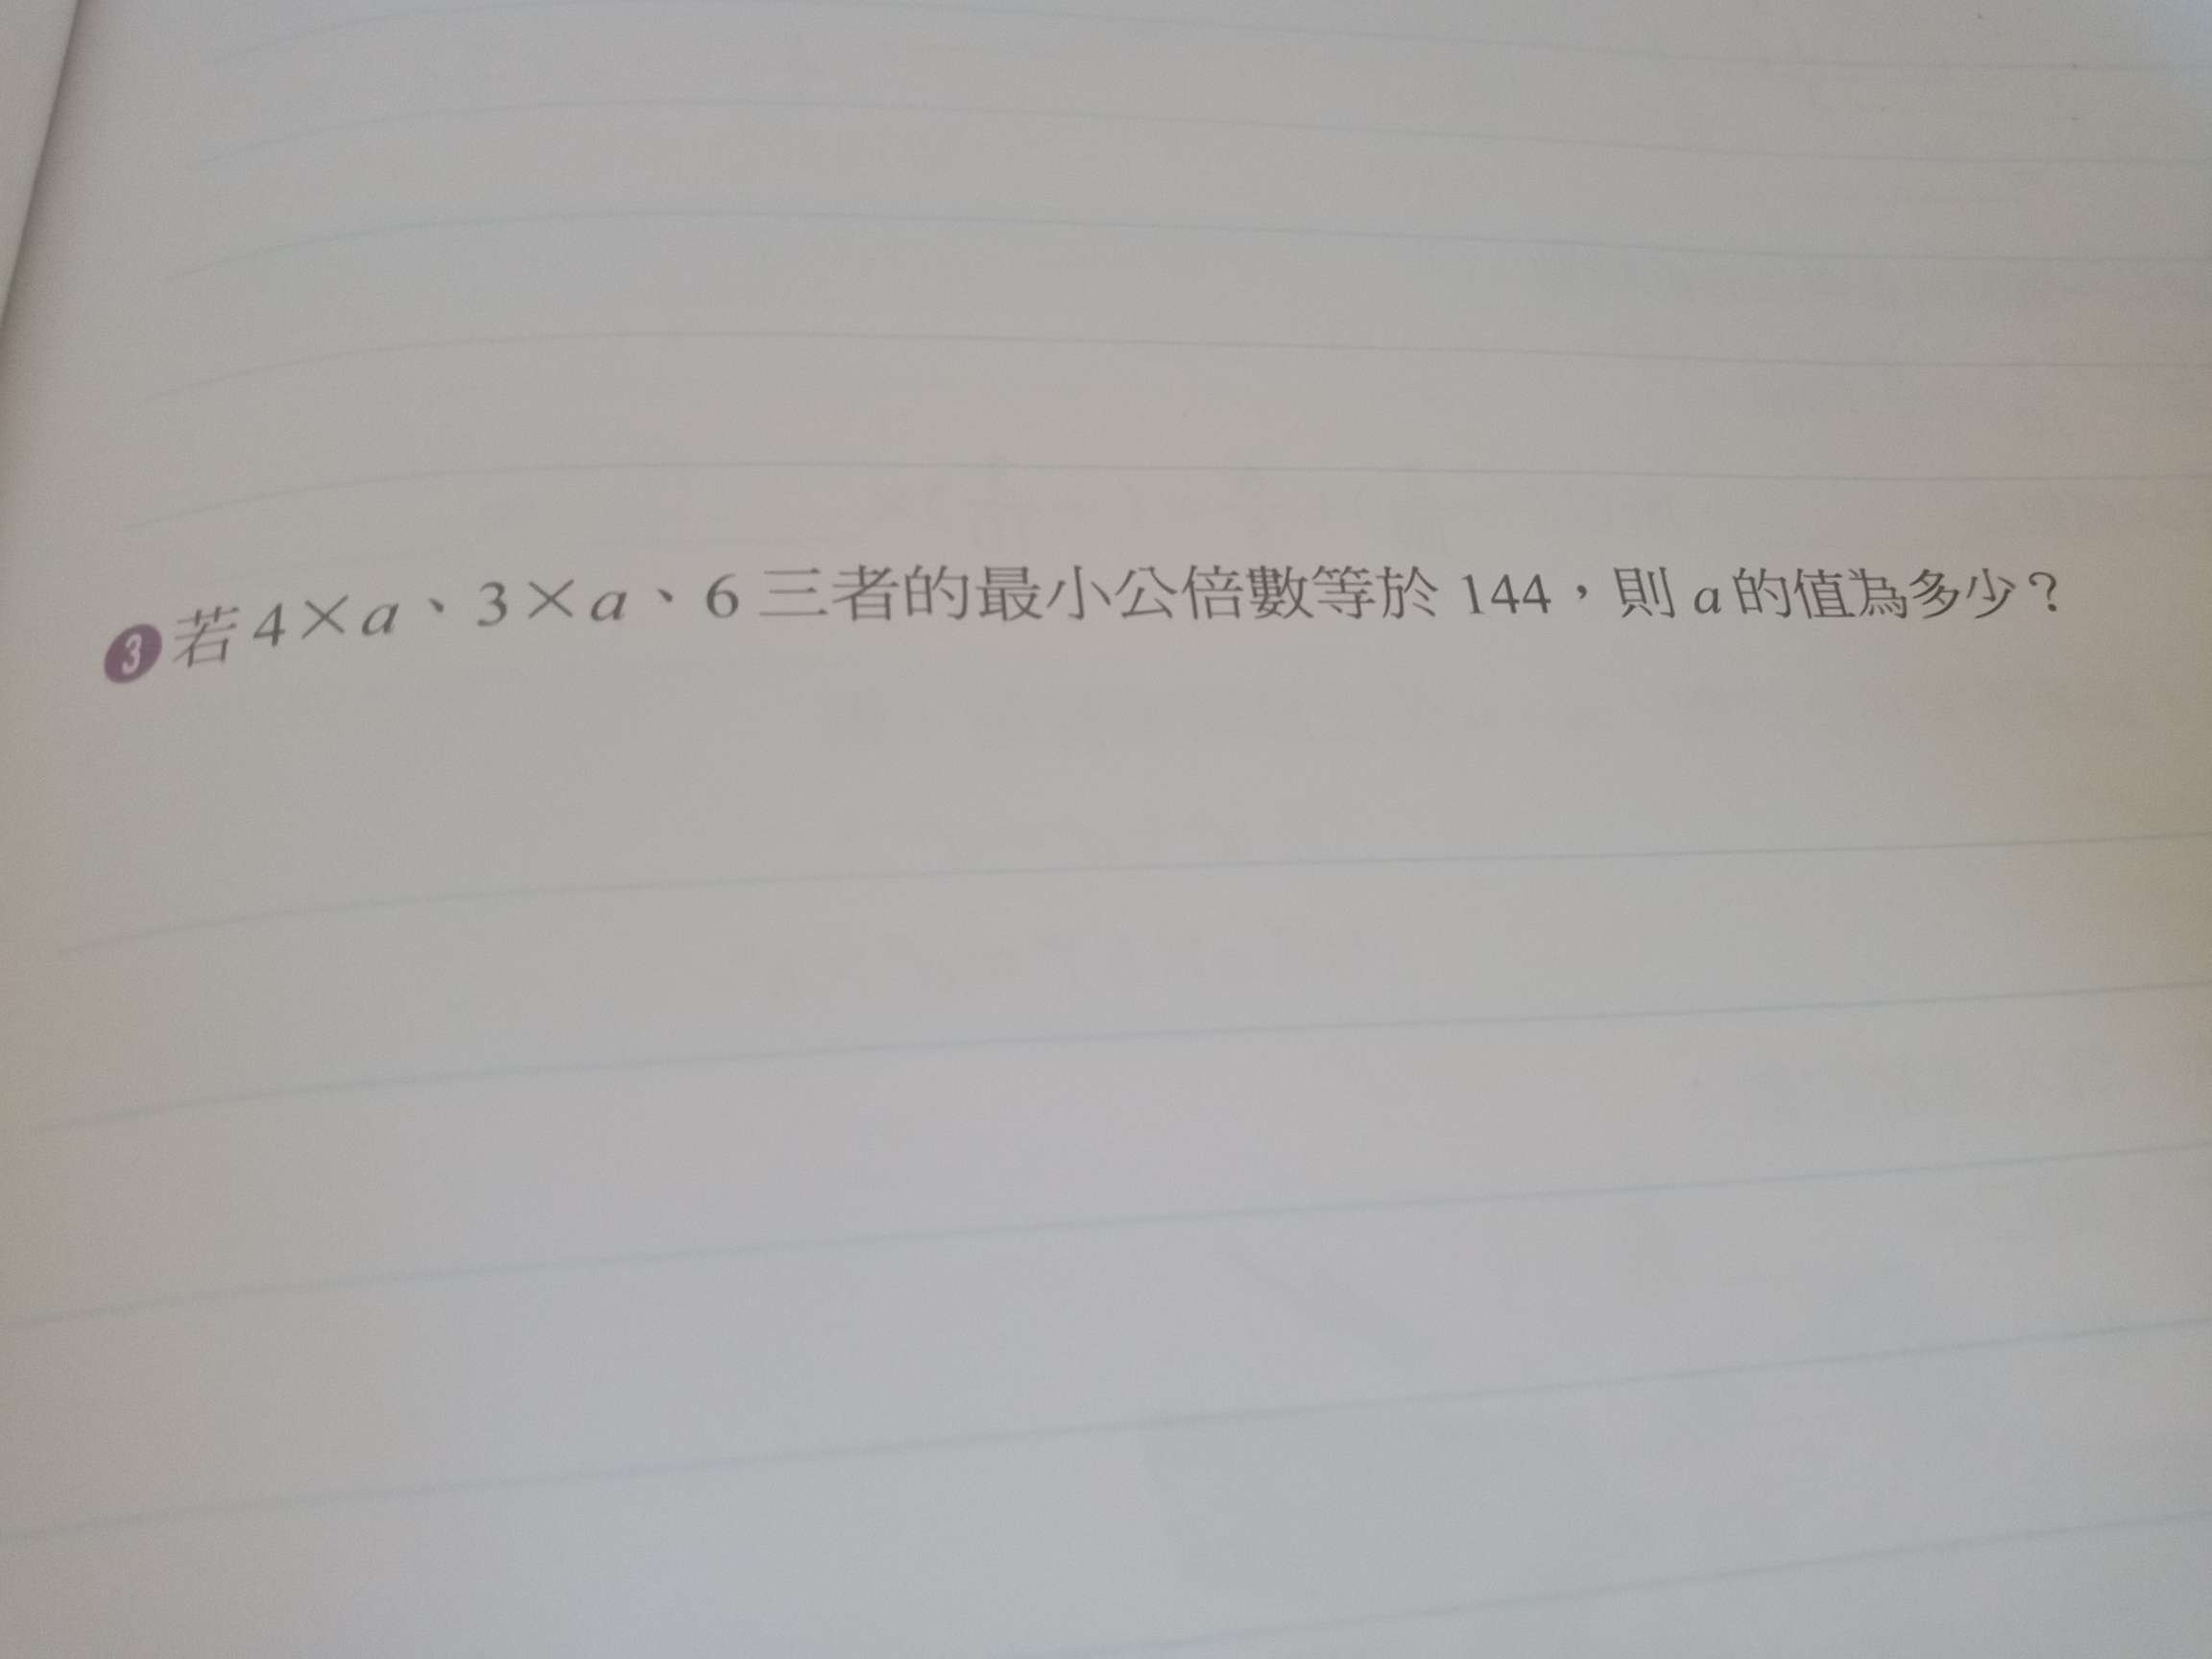 ❸若4×a、3×a、6三者的最小公倍數等於144,則a的值為多少?